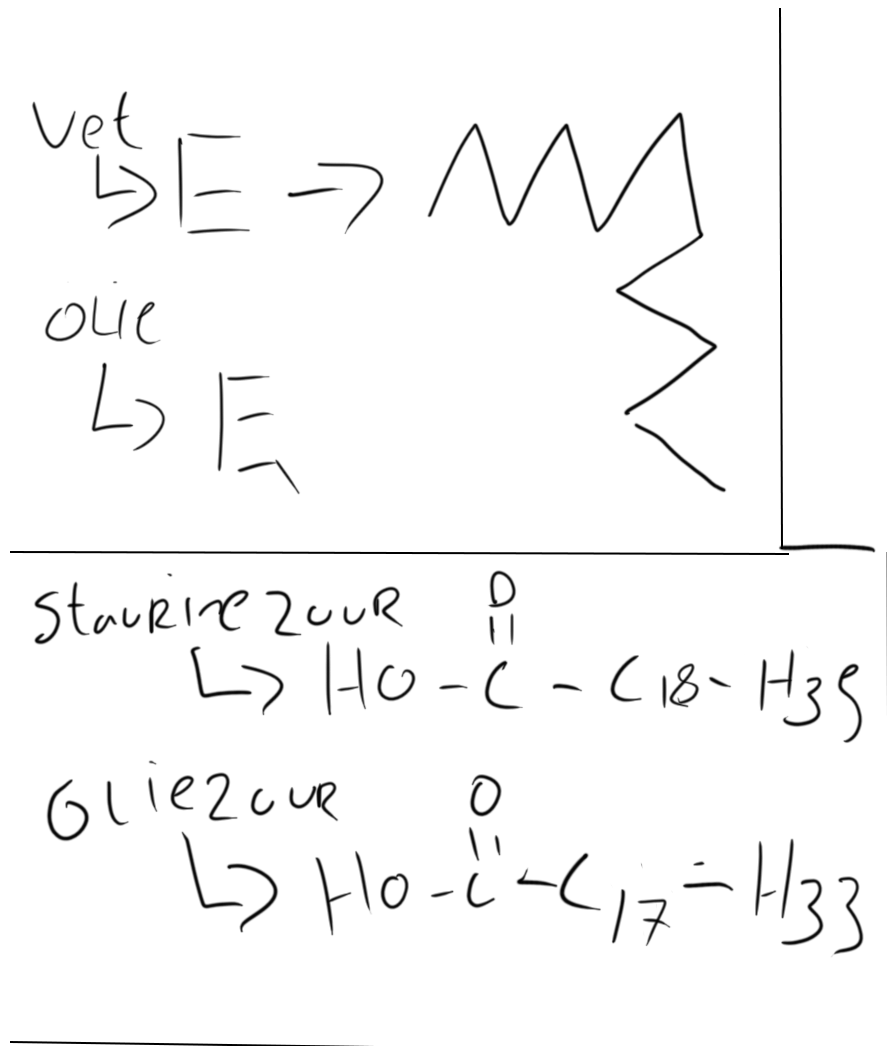 Vet
↳ E →
OLIE
↳ E
Staurinezuur
O
||
↳ HO - C - C18 - H35
Oliezuur
O
||
↳ HO - C - C17 - H33